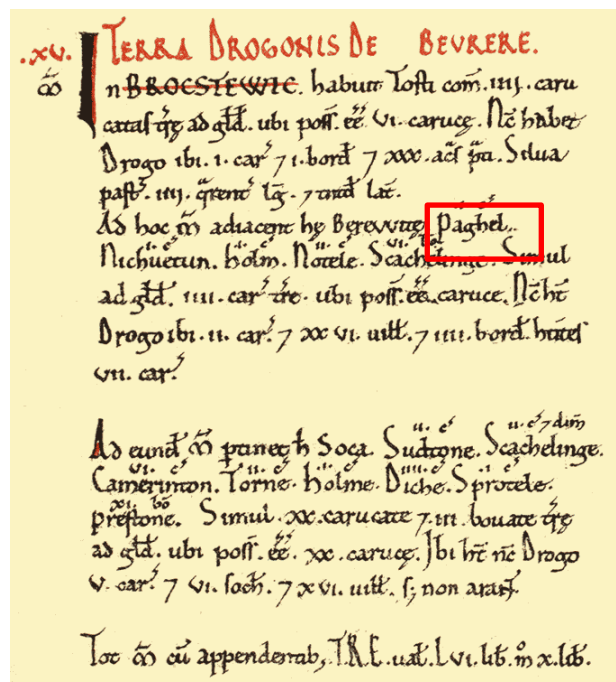 .xv. TERRA DROGONIS DE BEVRERE.
m̃ In BROCSTEWIC. habuit Tosti com̃. IIII. caru
catas tr̃ę ad gl̃d. ubi poss̃. eẽ. VI. carucę. Nc̃ habet
Drogo ibi. I. car̃ 7 I. bord̃ 7 XXX. ac̃s p̃ti. Silua
past̃. IIII. q̃rent̃ lg̃. 7 tntd̃ lat̃.
Ad hoc m̃ adiacent hę Berewite. Paghel.
Nichuetun. Holm. Notele. Scachelinge. Simul
ad gl̃d. IIII. car̃ tr̃e. ubi poss̃. eẽ. carucę. Nc̃ ht̃
Drogo ibi. II. car̃. 7 XXVI. uill̃. 7 IIII. bord̃. hn̄tes
VII. car̃.
II. c̃ II. c̃ 7 dim̃
Ad eund̃ m̃ ptinet h̃ Soca. Sudtone. Scachelinge.
Camerinton. Torne. Holme. Diche. Sprotele.
XI. bõ
prestone. Simul. XX. carucate 7 III. bouate tr̃ę
ad gl̃d. ubi poss̃. eẽ. XX. carucę. Ibi ht̃ nc̃ Drogo
V. car̃. 7 VI. soch̃. 7 XVI. uill̃. s; non arant̃.
Tot̃ m̃ cũ appendentib; T.R.E. ual̃. LVI. lib̃. m̊ X. lib̃.